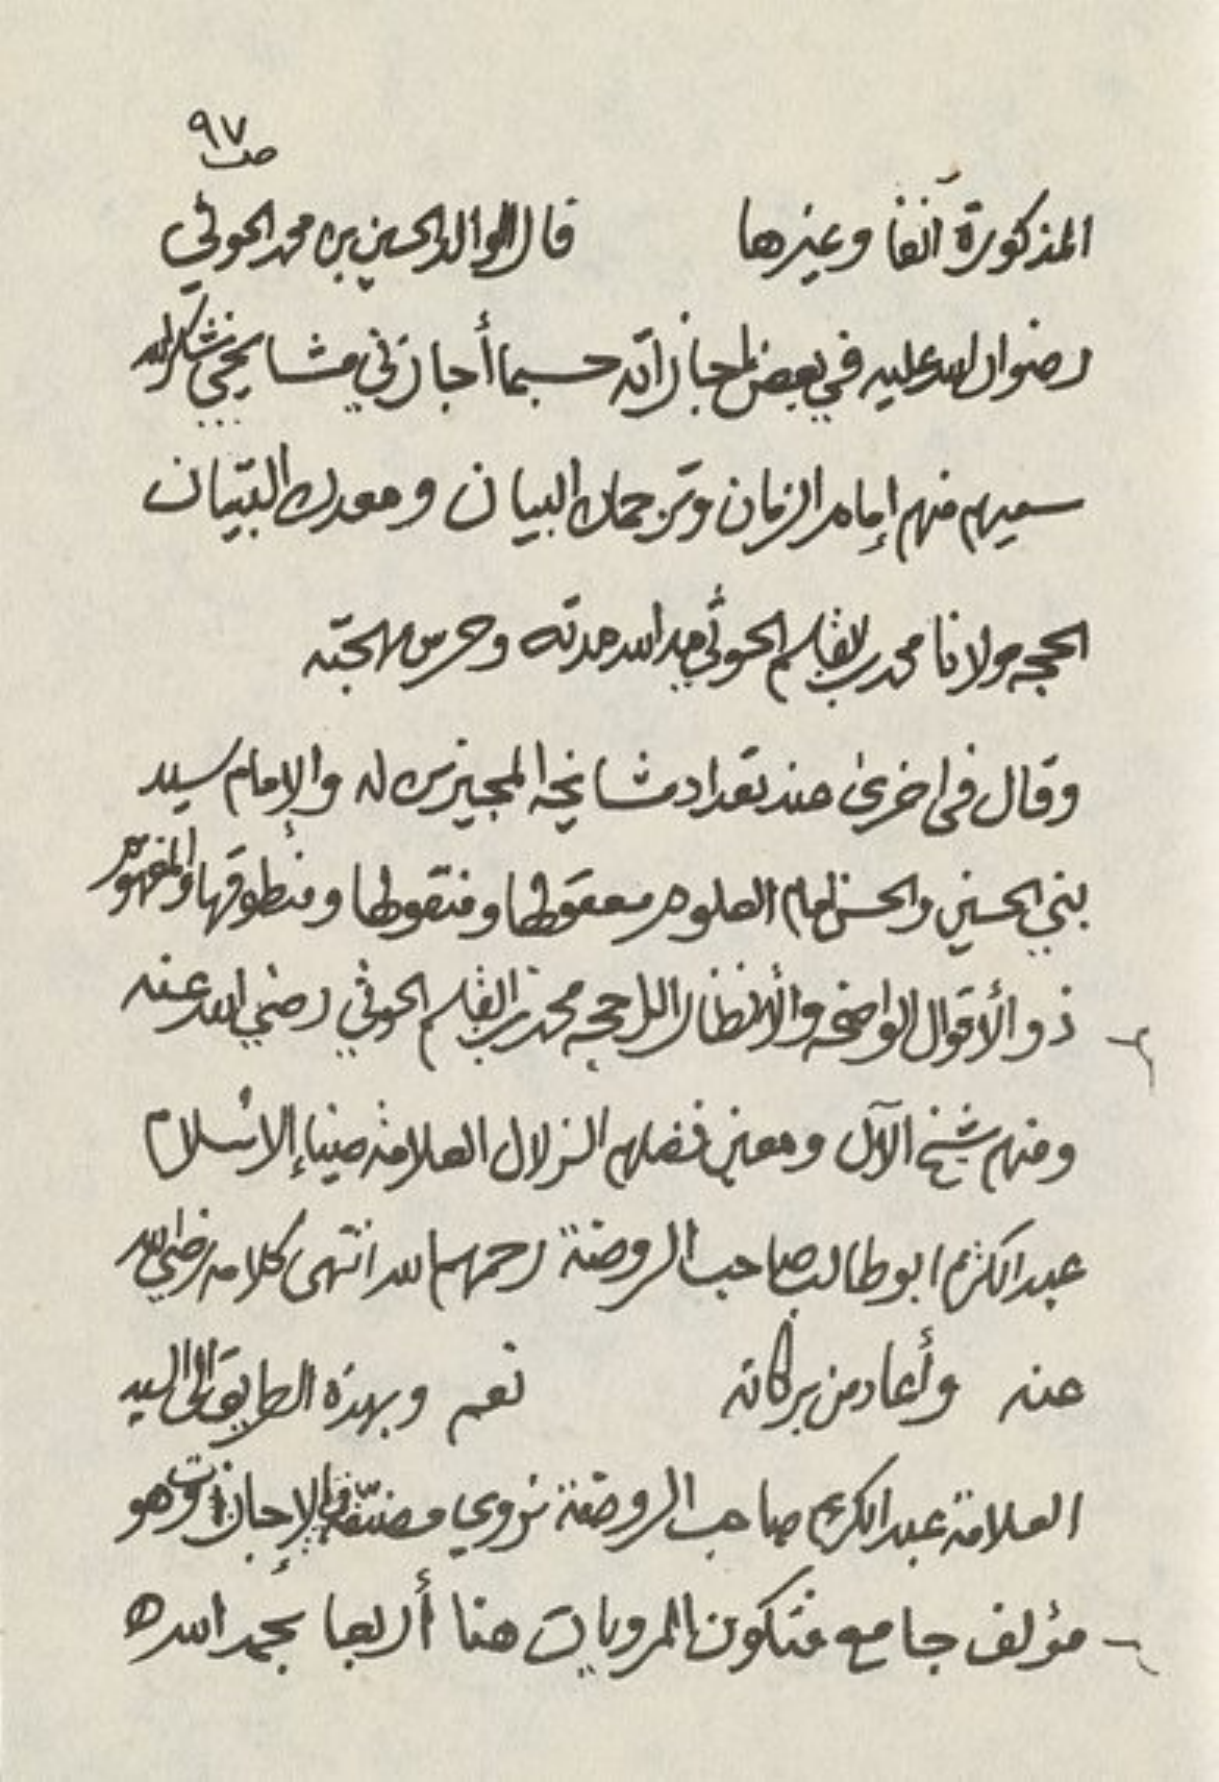 ص ٩٧
المذكورة آنفا وغيرها قال الوالد الحسين بن محمد الحوثي
رضوان الله عليه في بعض إجازاته حسبما أجازني مشايخي شكر الله
سعيهم منهم إمام الزمان وترجمان البيان ومعدن التبيان
الحجه مولانا محمد بن القاسم الحوثي مد الله مدته وحرس مهجته
وقال في اخرى عند تعداد مشايخه المجيزين له والإمام سيد
بني الحسين والحسن إمام العلوم معقولها ومنقولها ومنطوقها والمفهوم
ذو الأقوال الواضحه والأنظار الراجحه محمد بن القاسم الحوثي رضي الله عنه
ومنهم شيخ الآل ومعين فضلهم الزلال العلامة ضياء الاسلام
عبد الكريم ابو طالب صاحب الروضة رحمهم الله انتهى كلامه رضي الله
عنه وأعاد من بركاته نعم وبهذه الطريق إلى السيد
العلامة عبد الكريم صاحب الروضة نروي مصنفه في الإجازات وهو
مؤلف جامع فتكون المرويات هنا أربعا بحمد الله ه